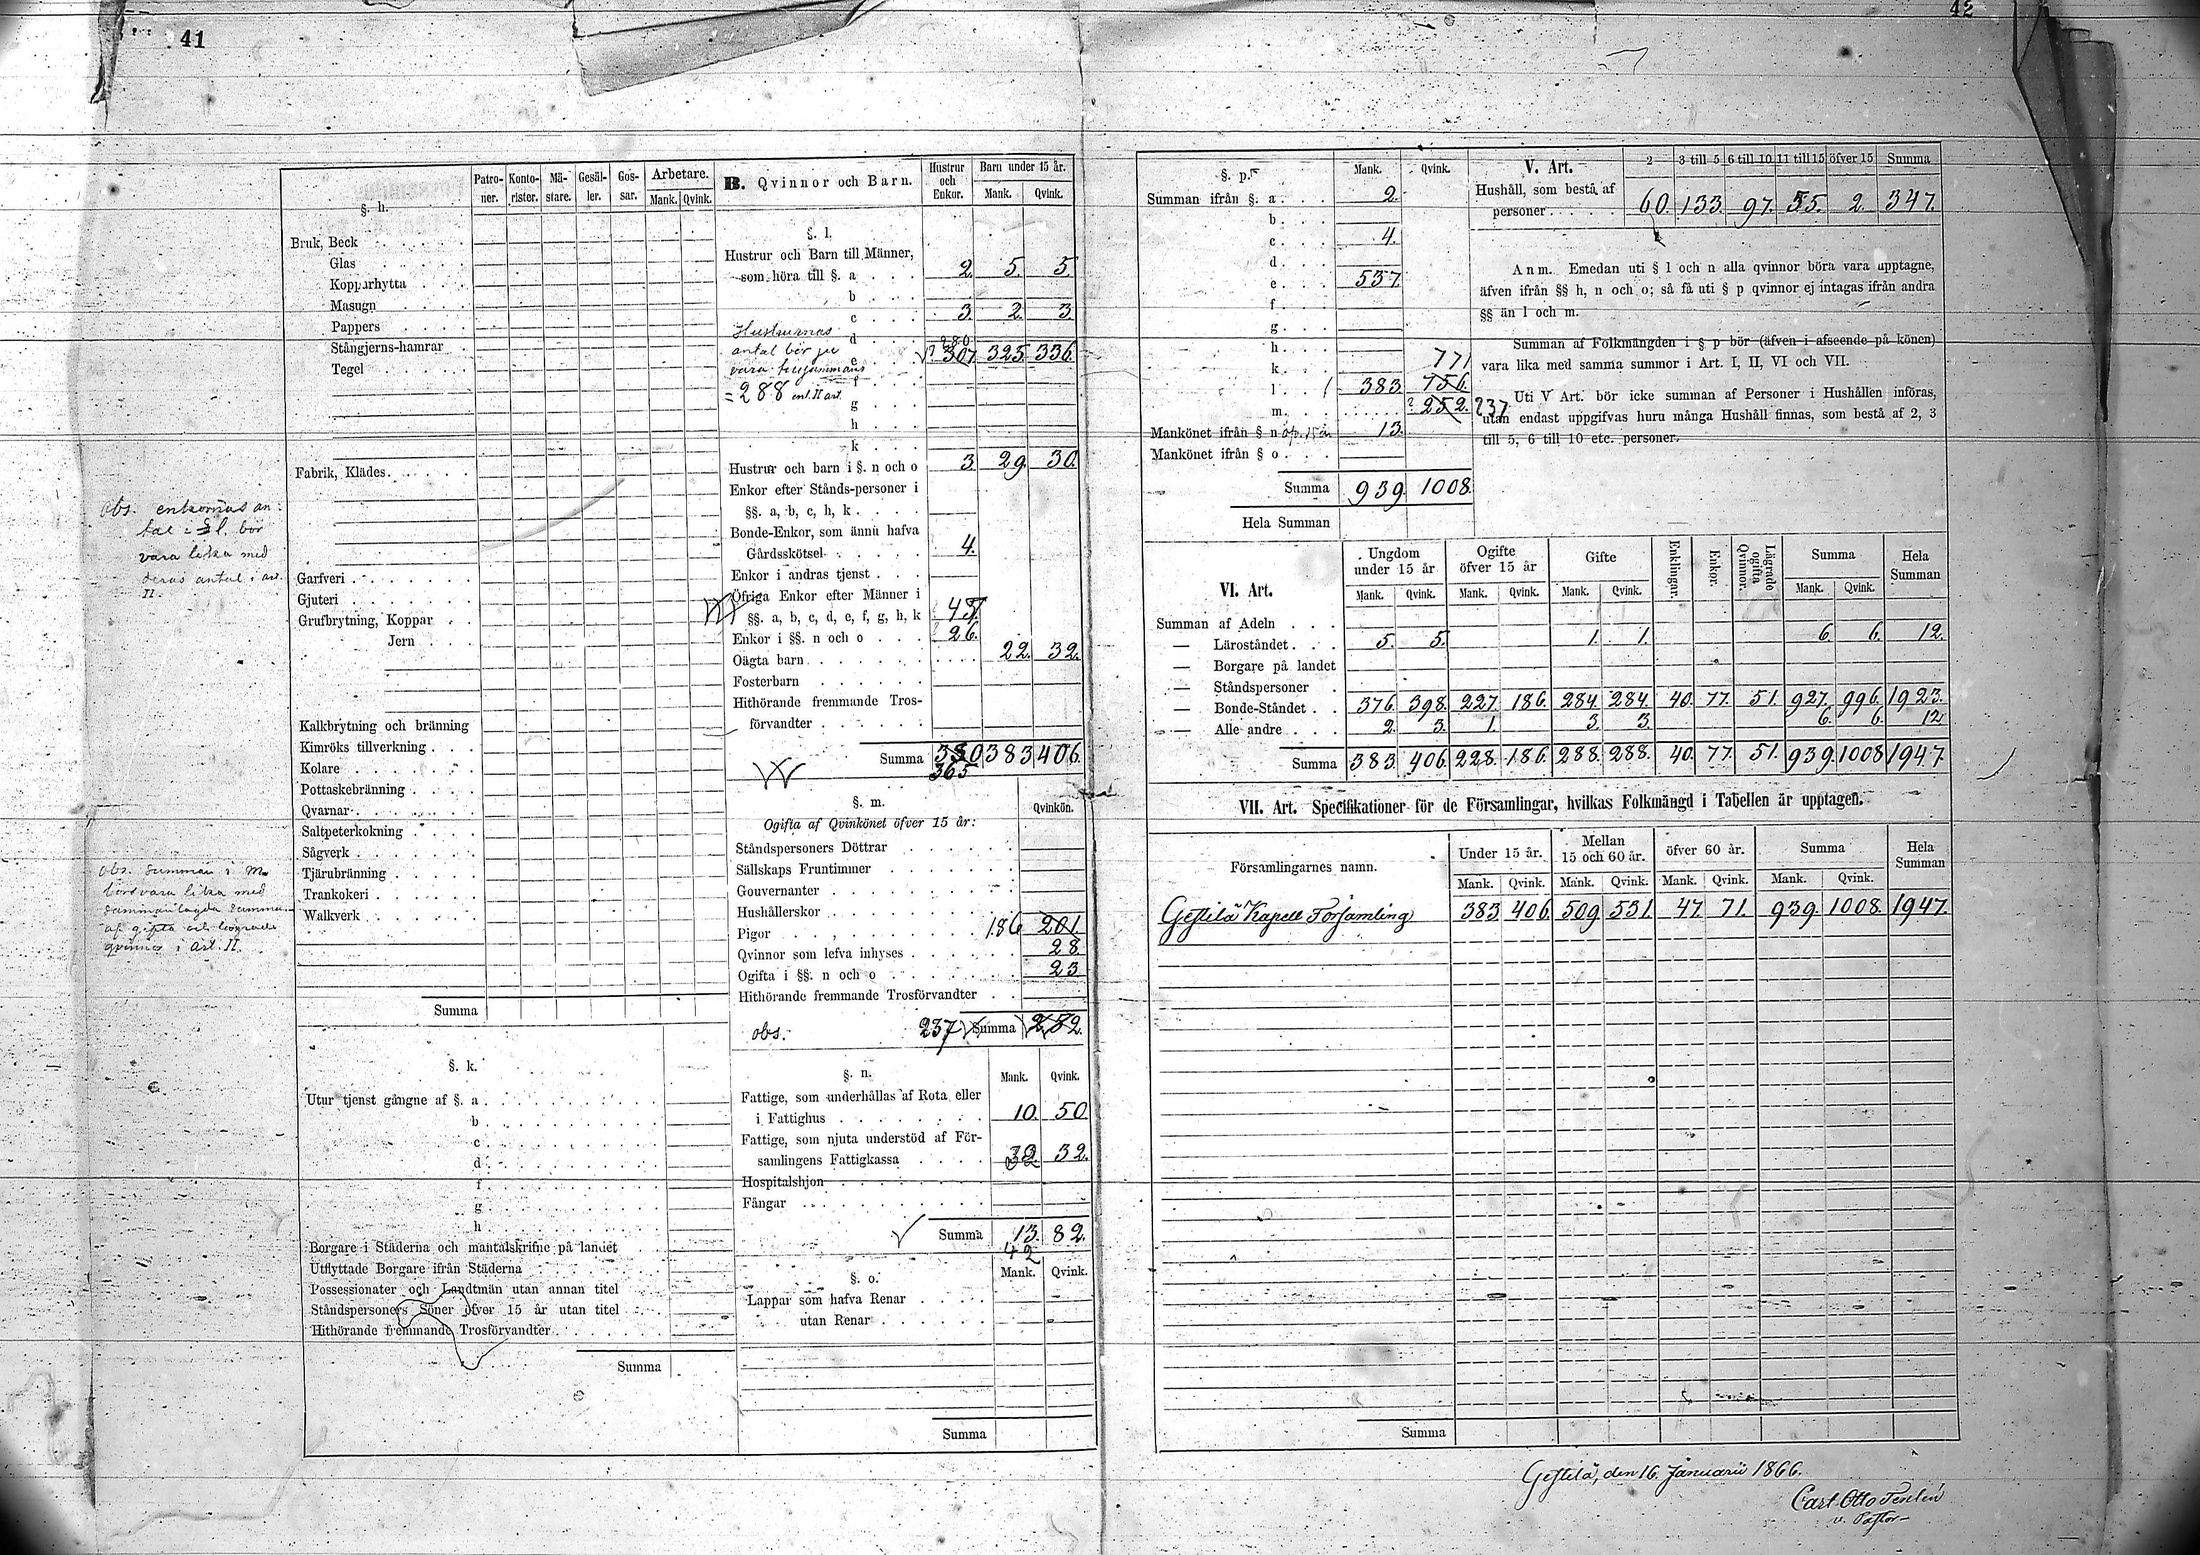 41
§. h.
Patro-ner. Konto-rister. Mä-stare. Gesäl-ler. Gos-sar. Arbetare. Mank. Qvink.
Bruk, Beck
Glas
Kopparhytta
Masugn
Pappers
Stångjerns-hamrar
Tegel
Fabrik, Klädes
obs. enkornas an-
tal i § l. bör
vara lika med
deras antal i art.
II.
Garfveri
Gjuteri
Grufbrytning, Koppar
Jern
Kalkbrytning och bränning
Kimröks tillverkning
Kolare
Pottaskebränning
Qvarnar
Saltpeterkokning
Sågverk
Tjärubränning
Trankokeri
Walkverk
obs. summan i M
bör vara lika med
sammanlagda summa
af gifta och lägrade
qvinnor i art. II.
Summa
§. k.
Utur tjenst gångne af §. a
b
c
d
f
g
h
Borgare i Städerna och mantalskrifne på landet
Utflyttade Borgare ifrån Städerna
Possessionater och Landtmän utan annan titel
Ståndspersoners Söner öfver 15 år utan titel
Hithörande fremmande Trosförvandter
Summa
B. Qvinnor och Barn. Hustrur och Enkor. Barn under 15 år. Mank. Qvink.
§. l.
Hustrur och Barn till Männer,
som höra till §. a 2. 5. 5
b
c 3. 2. 3.
d
280
e √? 307. 325. 336.
Hustrurnas
antal bör ju
vara tillsammans
= 288 enl. II art.
f
g
h
k
Hustrur och barn i §. n och o 3 29. 30.
Enkor efter Stånds-personer i
§§. a, b, c, h, k
Bonde-Enkor, som ännu hafva
Gårdsskötsel 4.
Enkor i andras tjenst
Öfriga Enkor efter Männer i
§§. a, b, c, d, e, f, g, h, k
Enkor i §§. n och o ? 26.
Oägta barn 22. 32.
Fosterbarn
Hithörande fremmande Tros-
förvandter
Summa 380 383 406.
365
§. m. Qvinkön.
Ogifta af Qvinkönet öfver 15 år:
Ståndspersoners Döttrar
Sällskaps Fruntimmer
Gouvernanter
Hushållerskor
Pigor 186 201.
Qvinnor som lefva inhyses 28.
Ogifta i §§. n och o 23
Hithörande fremmande Trosförvandter
obs. 237 Summa 252.
§. n. Mank. Qvink.
Fattige, som underhållas af Rota eller
i Fattighus 10. 50
Fattige, som njuta understöd af För-
samlingens Fattigkassa 32 32.
Hospitalshjon
Fångar
Summa 13. 82.
42
§. o. Mank. Qvink.
Lappar som hafva Renar
utan Renar
Summa
42
§. p. Mank. Qvink.
Summan ifrån §. a 2.
b
c 4.
d
e 537
f
g
h
k 771
l 383 756.
m ? 252. 237
Mankönet ifrån § n öf. 15 år 13.
Mankönet ifrån § o
Summa 939. 1008.
Hela Summan
V. Art. 2 3 till 5 6 till 10 11 till 15 öfver 15 Summa
Hushåll, som bestå af
personer 60. 133. 97. 55. 2. 347.
Anm. Emedan uti § l och n alla qvinnor böra vara upptagne,
äfven ifrån §§ h, n och o; så få uti § p qvinnor ej intagas ifrån andra
§§ än l och m.
Summan af Folkmängden i § p bör (äfven i afseende på könen)
vara lika med samma summor i Art. I, II, VI och VII.
Uti V Art. bör icke summan af Personer i Hushållen införas,
utan endast uppgifvas huru många Hushåll finnas, som bestå af 2, 3
till 5, 6 till 10 etc. personer.
VI. Art. Ungdom under 15 år Ogifte öfver 15 år Gifte Enklingar. Enkor. Lägrade ogifta Qvinnor. Summa Hela Summan
Mank. Qvink. Mank. Qvink. Mank. Qvink. Mank. Qvink.
Summan af Adeln
— Läroståndet 5. 5. 1. 1. 6. 6. 12.
— Borgare på landet
— Ståndspersoner
— Bonde-Ståndet 376. 398. 227. 186. 284. 284. 40. 77. 51. 927. 996. 1923.
— Alle andre 2. 3. 1. 3. 3. 6. 6. 12
Summa 383. 406. 228. 186. 288. 288. 40. 77. 51. 939. 1008 1947.
VII. Art. Specifikationer för de Församlingar, hvilkas Folkmängd i Tabellen är upptagen.
Församlingarnes namn. Under 15 år. Mellan 15 och 60 år. öfver 60 år. Summa Hela Summan
Mank. Qvink. Mank. Qvink. Mank. Qvink. Mank. Qvink.
Gestilä Kapell Församling 383 406. 509 531. 47. 71. 939. 1008. 1947.
Summa
Gestilä, den 16. Januarii 1866.
Carl Otto
v. Pastor